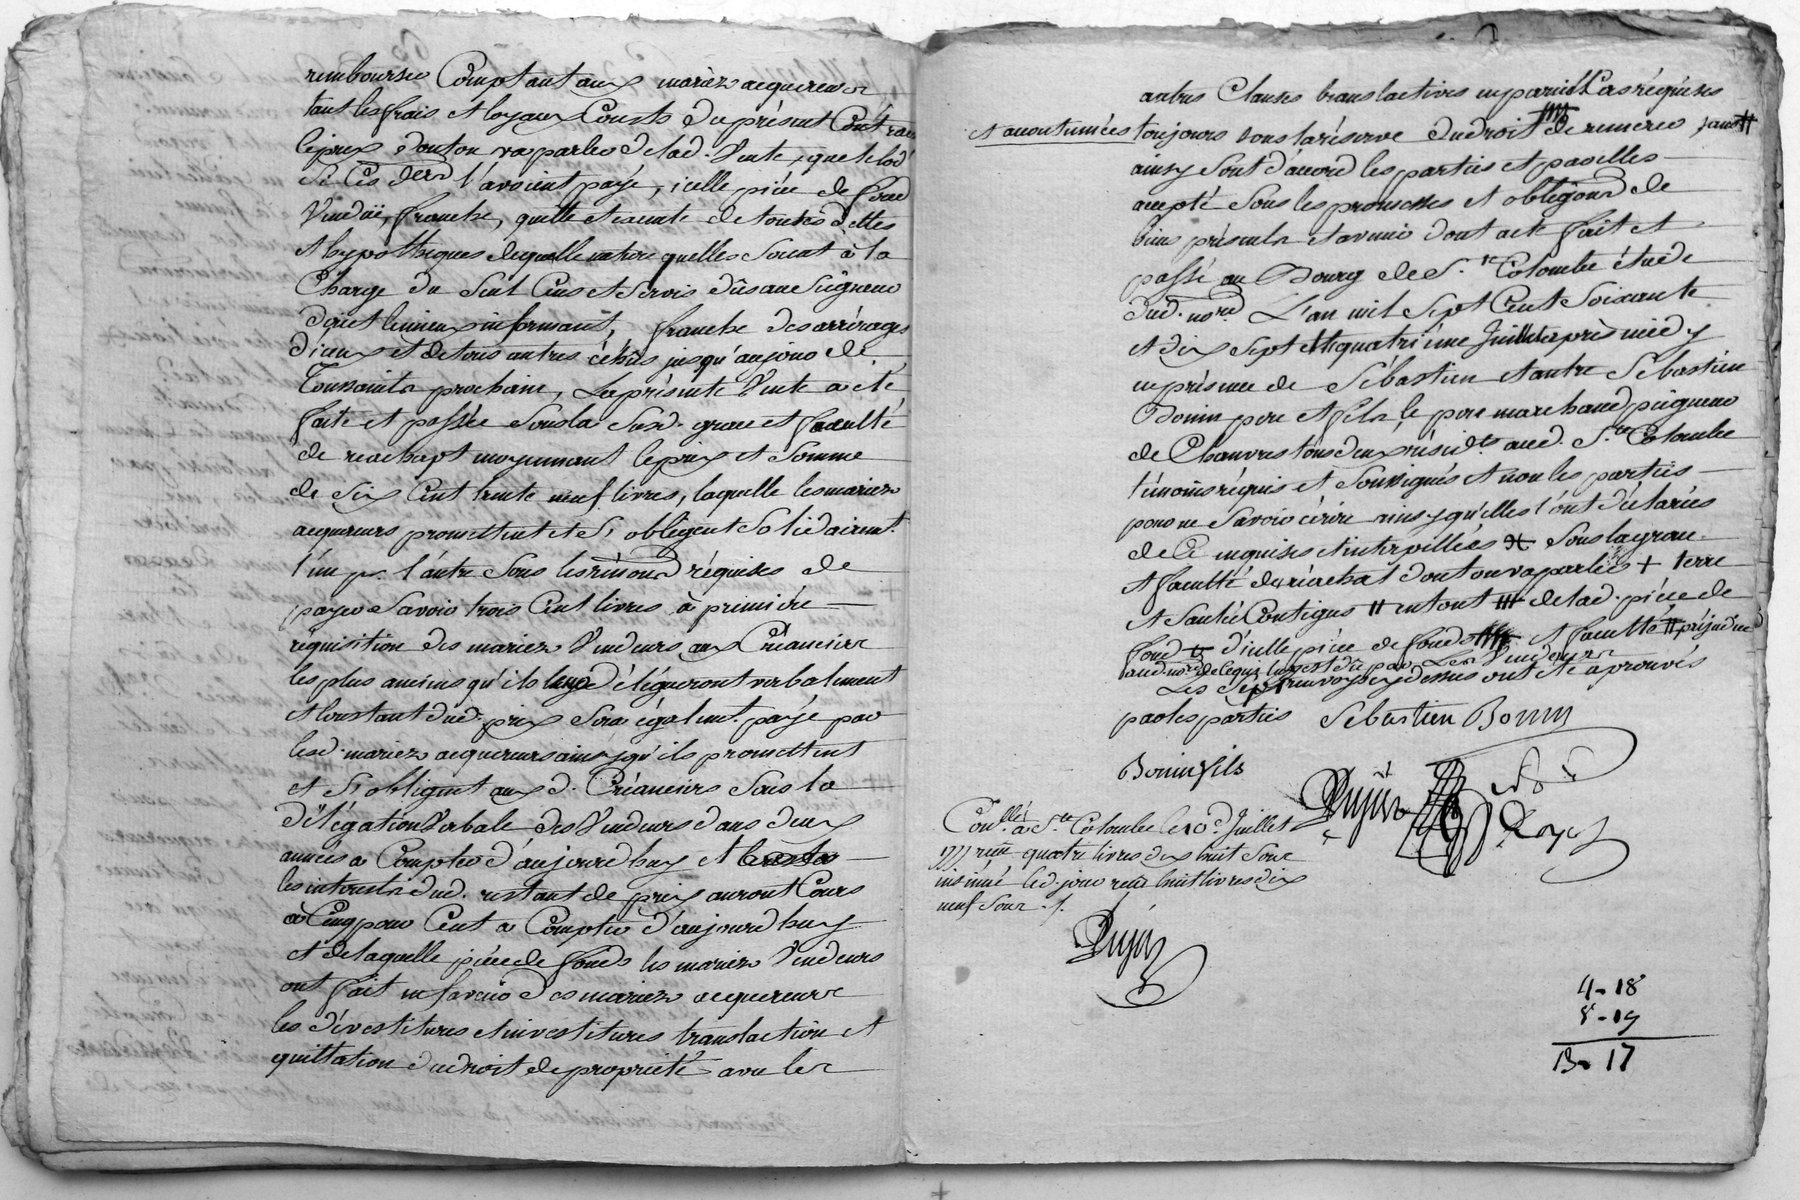 rembourser Comptant aux mariez acquereurs
tant les frais et loyaux Cousts du présent Contrat
le prix dont on va parler de lad. Vente, que led.
l'avoient payé, icelle piéce de fond
Vendüe, franche, quitte et exemte de toutes dettes
et hypothéques de quelle nature quelles soient à la
Charge du seul Cens et servis dûs au seigneur
d'ou et le mieux informant, franche des arrérages
d'iceux et de tous autres échûs jusqu'au jour de
Toussaints prochaine, La présente Vente a été
faite et passée sous la susd. grace et faculté
de reachapt moyennant le prix et somme
de six Cent trente neuf livres, laquelle les mariez
acquereurs promettent et s'obligent solidairemt.
l'un pr. l'autre sous les rénon réquises de
payer savoir trois Cent livres à premiére
réquisition des mariez Vendeurs aux Créanciers
les plus anciens qu'ils leur délégueront verbalement
et le restant dud. prix sera égalemt. payé par
lesd. mariez acquereurs ainsy qu'ils promettent
et s'obligent aux d. Créanciers sous la
délégation Verbale des Vendeurs dans deux
années à Compter d'aujourd'huy et
les interests dud. restant de prix auront Cours
à Cinq pour Cent à Compter d'aujourd'huy
et de laquelle piéce de fonds les mariez Vendeurs
ont fait en faveur des mariez acquereurs
les dévestitures et investitures translaction et
quittation du droit de propriété avec les
autres Clauses translactives en pareil Cas réquises
et accoutumées toujours sous la réserve dud. droit de remeré sans #
ainsy sont d'acord les parties et par elles
accepté sous les promesses et obligeons de
biens présents et avenir dont acte fait et
passé au Bourg de Ste. Colombe étude
dud. nore. L'an mil sept Cent soixante
et dix sept et le quatriéme Juillet après midy
en présence de Sébastien et autre Sébastien
Bonin pere et fils, le pere marchand peigneur
de Chanvre tous deux résidts. aud. Ste. Colombe
témoins réquis et soussignés et non les parties
pour ne savoir écrire ainsy qu'elles l'ont déclarés
de Ce enquises et interpellées # sous la grace
et faculté de réachat dont on va parler + terre
et Contigus # entout # de lad. piéce de
fond # d'icelle piéce de fonds et faculté # préjudice
aud. nore. par Les Vendeurs
Les sept renvoys cy dessus ont été aprouvés
par les parties Sebastien Bonin
Bonin fils
Pujin
Conllé. à Ste. Colombe le 10e. Juillet
1777 reçu quatre livres dix huit sous
insinué led. jour reçu huit livres dix
neuf sous.
Pujin
4 - 18
8 - 19
13 - 17